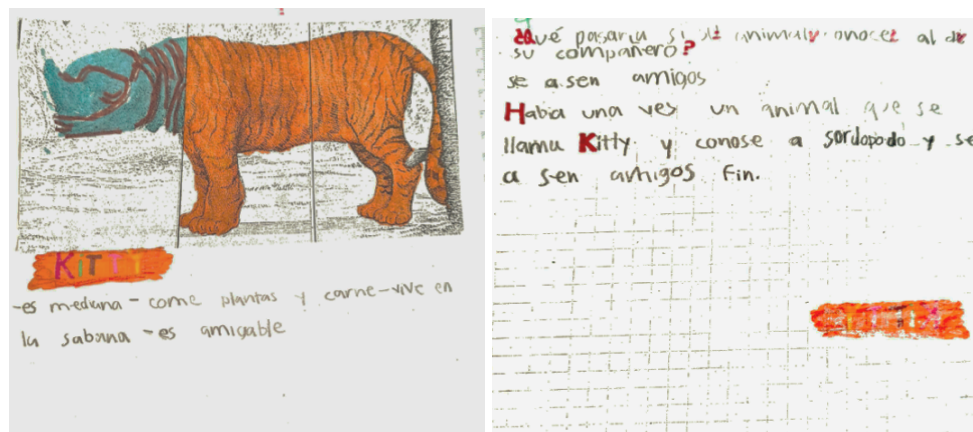 KiTTY
-es mediana - come plantas y carne-vive en
la sabana -es amigable
¿Qué pasaria si animal conoce al de
su compañero?
se a sen amigos
Habia una ves un animal que se
llama Kitty y conose a sordopodo y se
a sen amigos Fin.